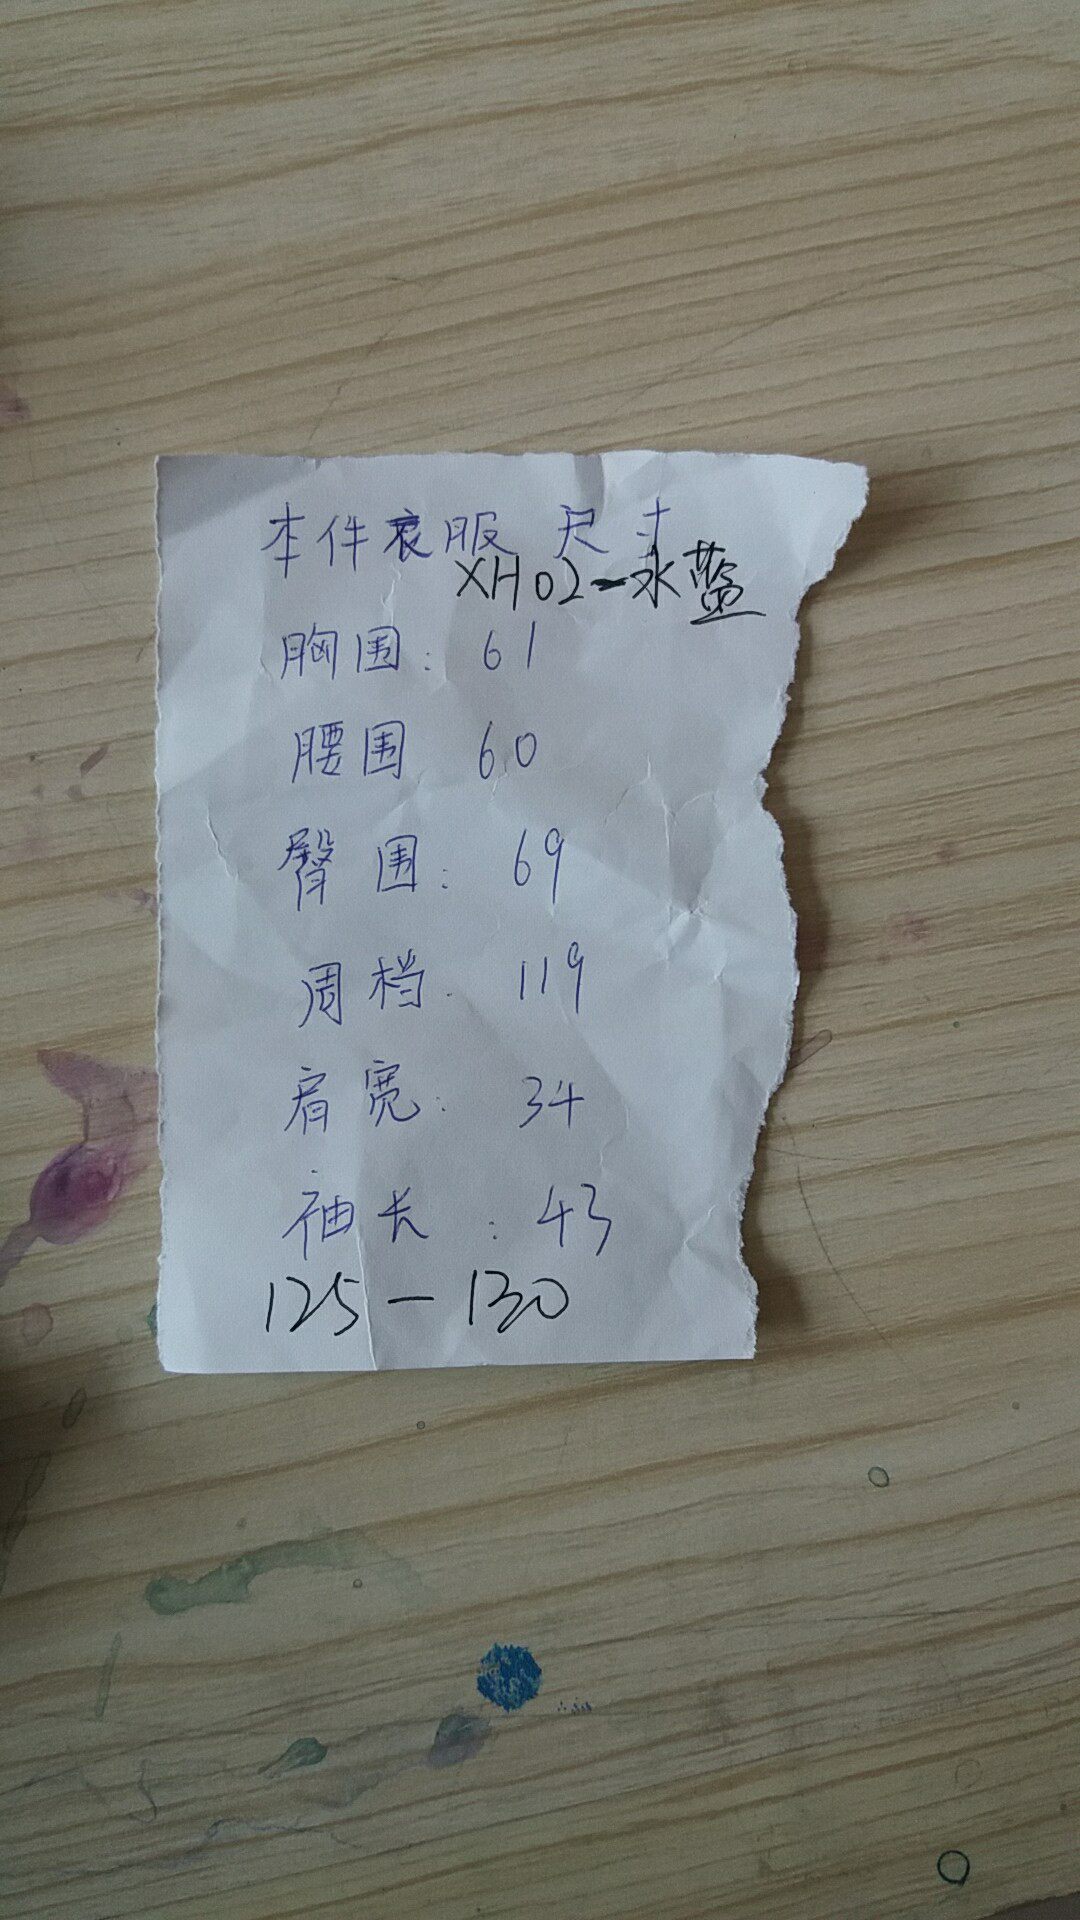 本件衣服 尺寸
XH02-水蓝
胸围: 61
腰围 60
臀围: 69
周档: 119
肩宽: 34
袖长: 43
125-130